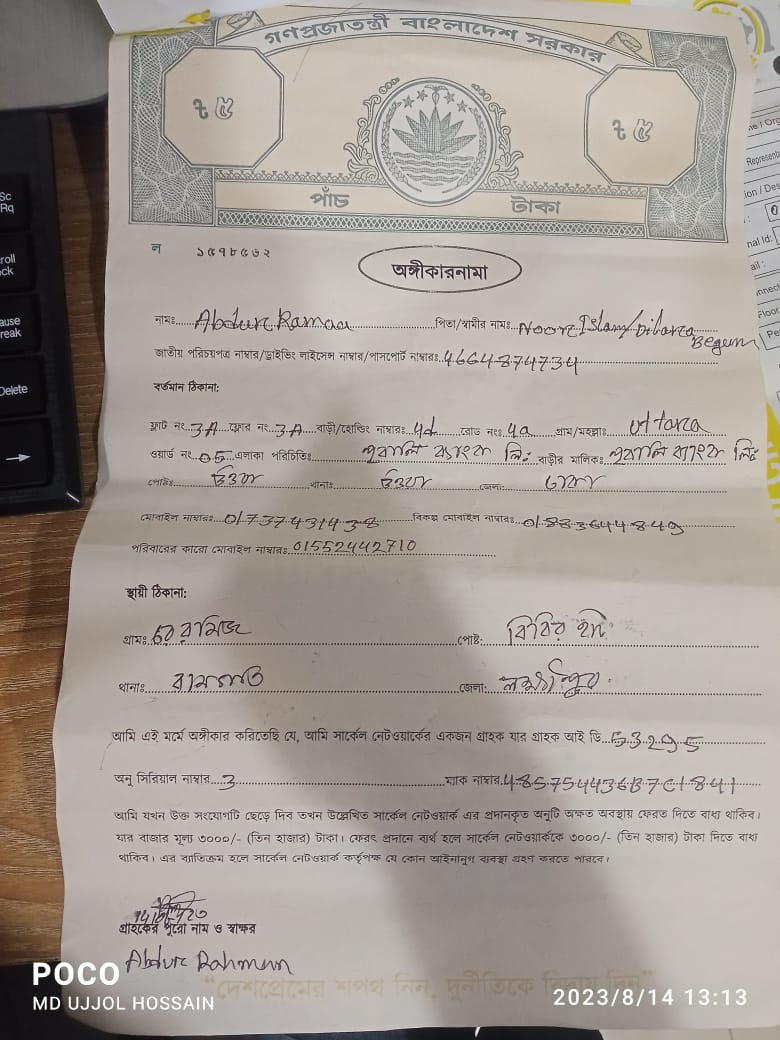 গণপ্রজাতন্ত্রী বাংলাদেশ সরকার
৳ ৫ ৳ ৫
পাঁচ টাকা
ন ১৫৭৮৫৬২
অঙ্গীকারনামা
নামঃ Abdur Ramaa পিতা/স্বামীর নামঃ Noor Islam/Dilara Begum
জাতীয় পরিচয়পত্র নাম্বার/ড্রাইভিং লাইসেন্স নাম্বার/পাসপোর্ট নাম্বারঃ 4664874734
বর্তমান ঠিকানা:
ফ্লাট নং 3A ফ্লোর নং 3A বাড়ী/হোল্ডিং নাম্বারঃ 4d রোড নংঃ 4a গ্রাম/মহল্লাঃ uttara
ওয়ার্ড নং 05 এলাকা পরিচিতিঃ পূবালি ব্যাংক লিঃ বাড়ীর মালিকঃ পূবালি ব্যাংক লিঃ
পোষ্টঃ উত্তরা থানাঃ উত্তরা জেলা: ঢাকা
মোবাইল নাম্বারঃ 01737431438 বিকল্প মোবাইল নাম্বারঃ 01883644849
পরিবারের কারো মোবাইল নাম্বারঃ 01552442710
স্থায়ী ঠিকানা:
গ্রামঃ চর রমিজ পোষ্ট: বিবির হাট
থানাঃ রামগতি জেলা: লক্ষ্মীপুর
আমি এই মর্মে অঙ্গীকার করিতেছি যে, আমি সার্কেল নেটওয়ার্কের একজন গ্রাহক যার গ্রাহক আই ডি 53295
অনু সিরিয়াল নাম্বার 3 ম্যাক নাম্বার 485754436B7C1841
আমি যখন উক্ত সংযোগটি ছেড়ে দিব তখন উল্লেখিত সার্কেল নেটওয়ার্ক এর প্রদানকৃত অনুটি অক্ষত অবস্থায় ফেরত দিতে বাধ্য থাকিব।
যার বাজার মূল্য ৩০০০/- (তিন হাজার) টাকা। ফেরৎ প্রদানে ব্যর্থ হলে সার্কেল নেটওয়ার্ককে ৩০০০/- (তিন হাজার) টাকা দিতে বাধ্য
থাকিব। এর ব্যতিক্রম হলে সার্কেল নেটওয়ার্ক কর্তৃপক্ষ যে কোন আইনানুগ ব্যবস্থা গ্রহণ করতে পারবে।
গ্রাহকের পুরো নাম ও স্বাক্ষর
Abdur Rahman
"দেশপ্রেমের শপথ নিন, দুর্নীতিকে বিদায় দিন"
POCO
MD UJJOL HOSSAIN
2023/8/14 13:13
Delete